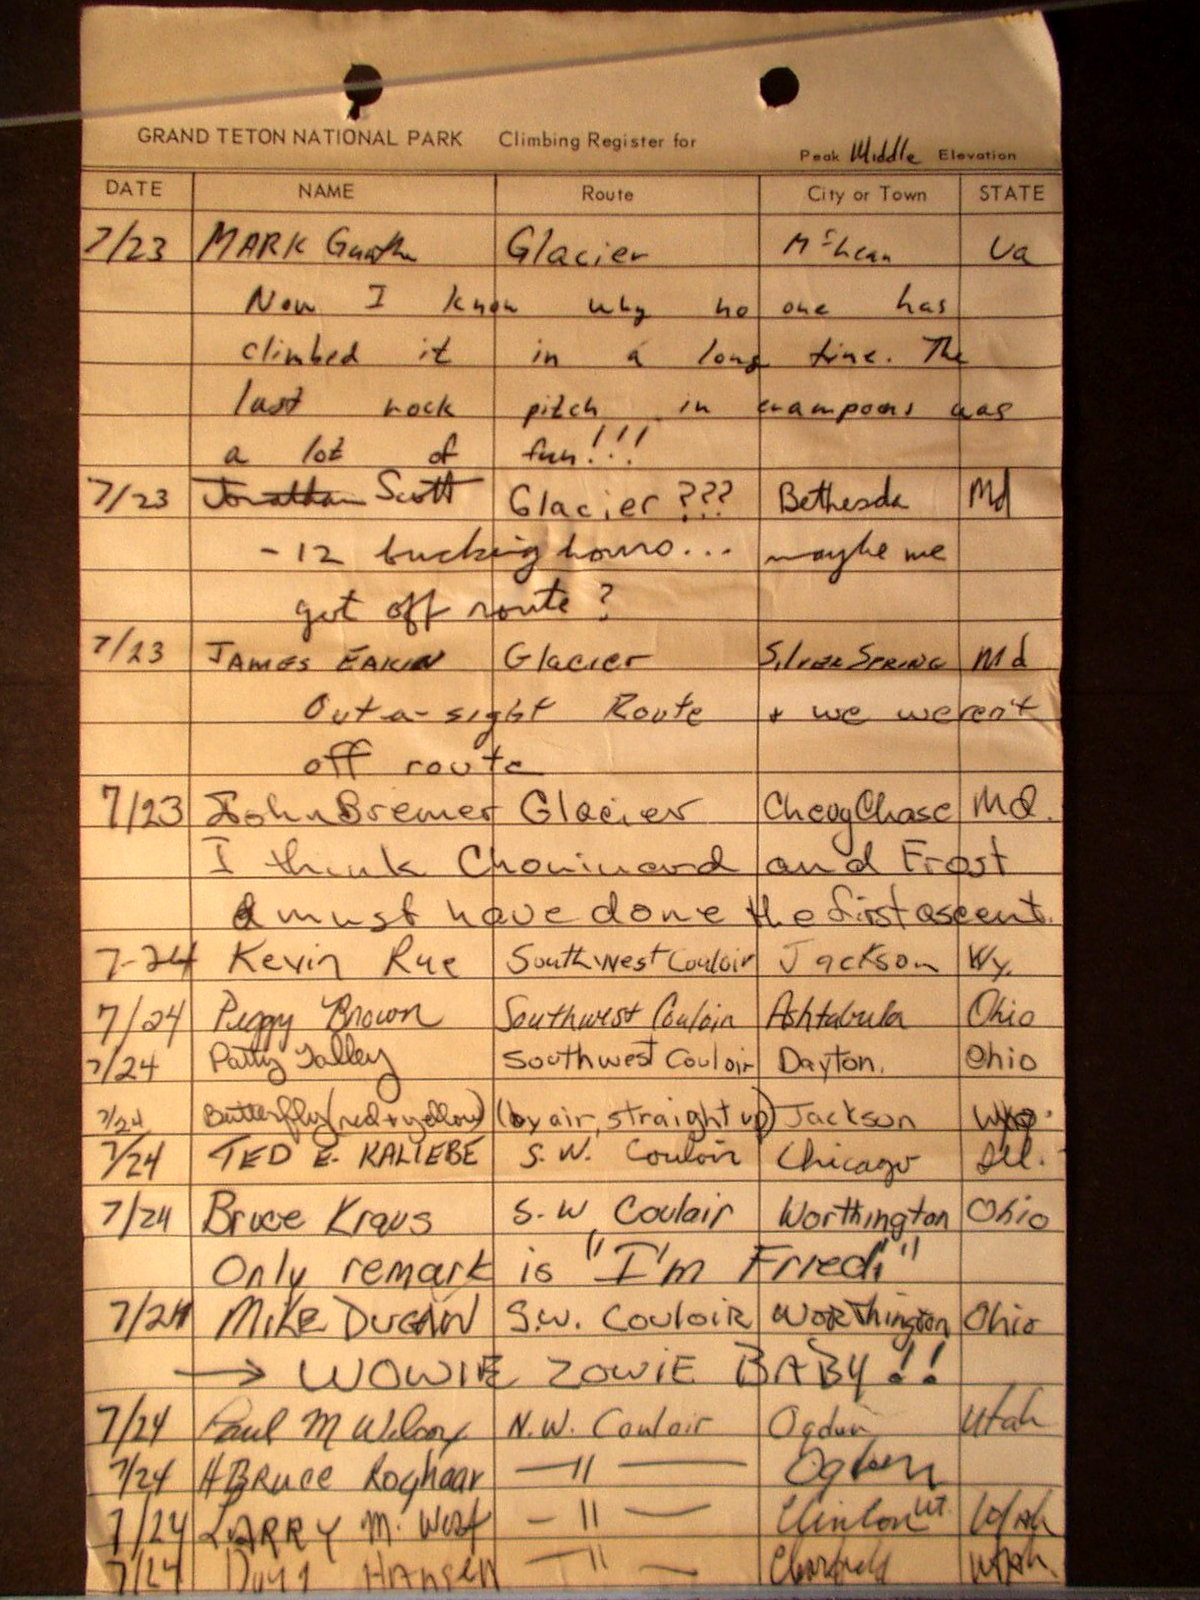 GRAND TETON NATIONAL PARK Climbing Register for Peak Middle Elevation
DATE NAME Route City or Town STATE
7/23 MARK Glacier McLean Va
Now I know why no one has
climbed it in a long time. The
last rock pitch in crampons was
a lot of fun!!!
7/23 Jonathan Scott Glacier ??? Bethesda Md
- 12 bucking hours... maybe we
got off route?
7/23 JAMES EAKIN Glacier SILVER SPRING Md
Out-a-sight Route + we weren't
off route
7/23 John Bremer Glacier Chevy Chase Md.
I think Chouinard and Frost
must have done the first ascent.
7-24 Kevin Rue Southwest Couloir Jackson Wy.
7/24 Peggy Brown Southwest Couloir Ashtabula Ohio
7/24 Patty Talley Southwest Couloir Dayton, Ohio
7/24 Butterfly (red + yellow) (by air, straight up) Jackson Wyo.
7/24 TED E. KALIEBE S. W. Couloir Chicago Ill.
7/24 Bruce Kraus S. W Coulair Worthington Ohio
Only remark is "I'm Fried"
7/24 MIKE DUGAN S.W. COULOIR WORThington Ohio
→ WOWIE ZOWIE BABY!!
7/24 Paul M Wilcox N.W. Couloir Ogden Utah
7/24 H BRuce Roghaar — " — Ogden
7/24 LARRY M. West — " — Clinton UT. Utah
7/24 Doug HANSEN — " — Clearfield Utah